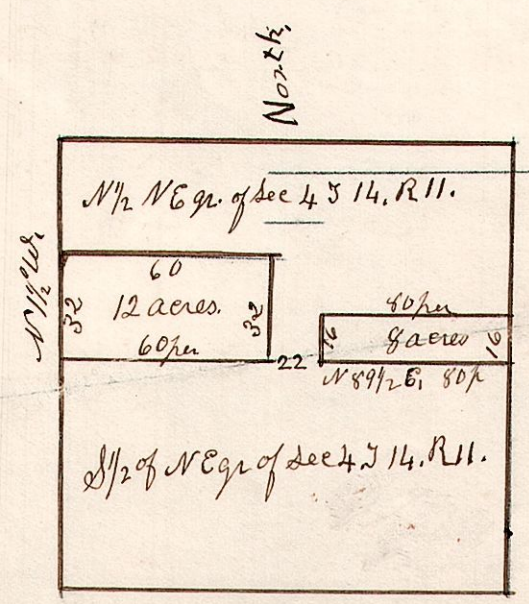 North,
N 1/2 NE qr. of Sec 4 T 14. R 11.
N 1/2° W.
60
32
12 acres.
32
60 per
22
80 per
16
8 acres
16
N 89 1/2 E, 80 p
S 1/2 of NE qr of Sec 4 T 14. R 11.